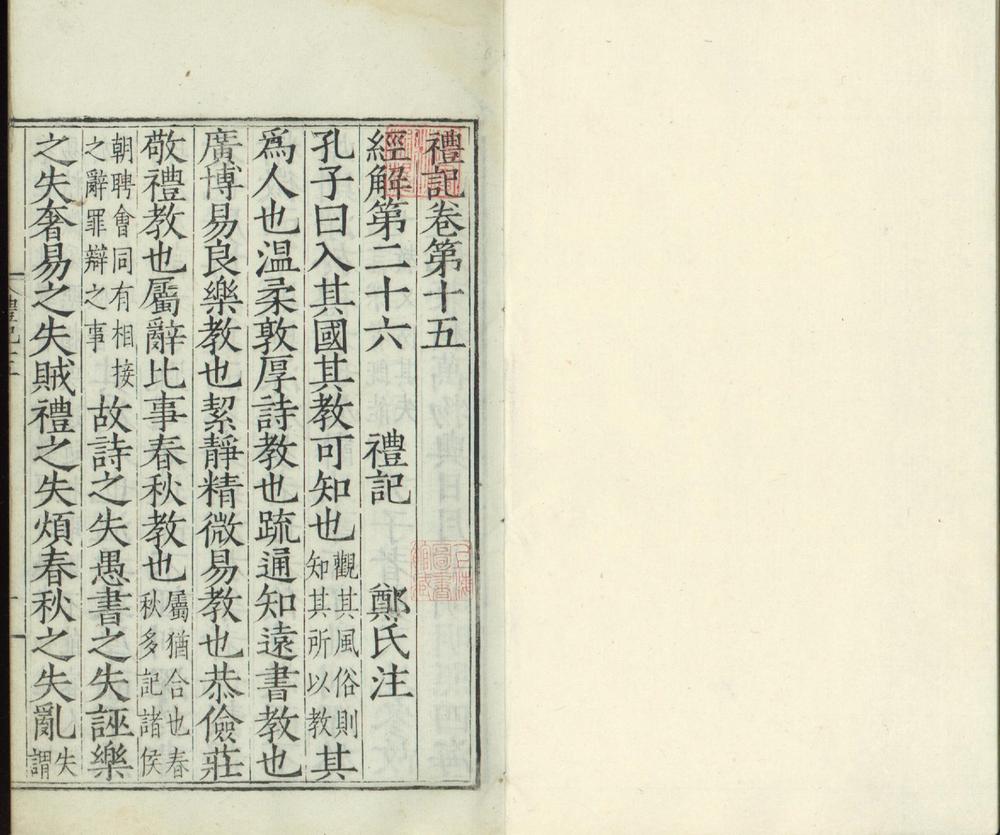 禮記卷第十五
經解第二十六 禮記 鄭氏注
孔子曰入其國其教可知也觀其風俗則知其所以教其
爲人也温柔敦厚詩教也疏通知遠書教也
廣博易良樂教也絜靜精微易教也恭儉莊
敬禮教也屬辭比事春秋教也屬猶合也春秋多記諸侯
朝聘會同有相接之辭罪辯之事故詩之失愚書之失誣樂
之失奢易之失賊禮之失煩春秋之失亂失謂